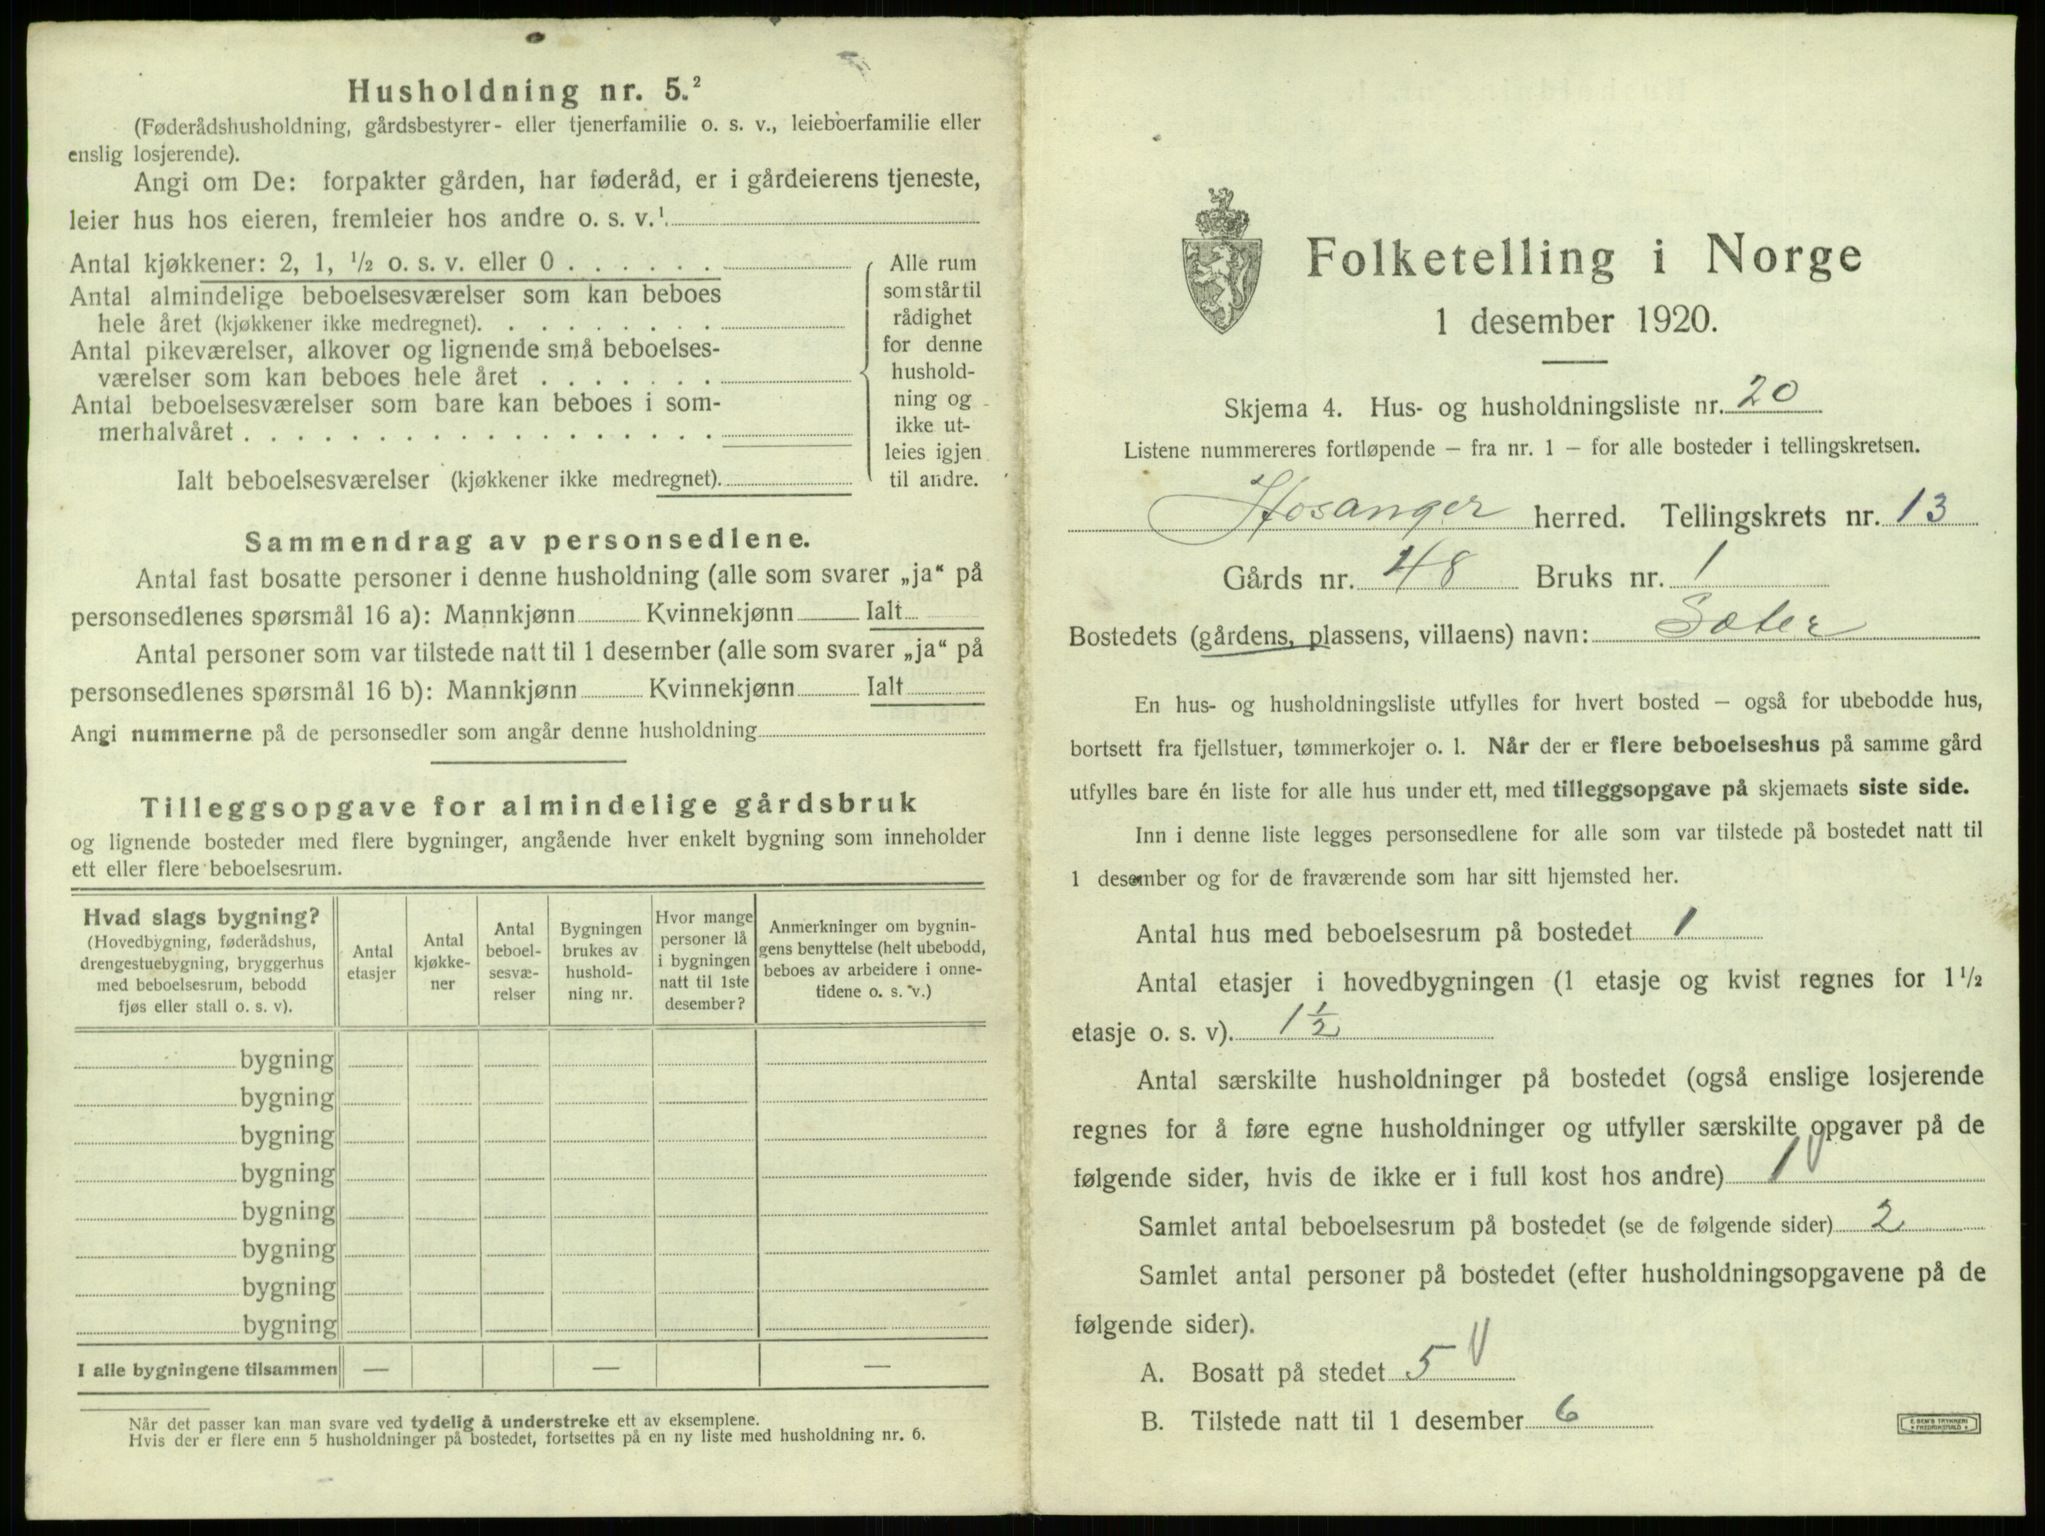 Husholdning nr. 5.²
(Føderådshusholdning, gårdsbestyrer- eller tjenerfamilie o. s. v., leieboerfamilie eller
enslig losjerende).
Angi om De: forpakter gården, har føderåd, er i gårdeierens tjeneste,
leier hus hos eieren, fremleier hos andre o. s. v.¹
Antal kjøkkener: 2, 1, ½ o. s. v. eller 0 . . . . . .
Antal almindelige beboelsesværelser som kan beboes
hele året (kjøkkener ikke medregnet). . . . . . . . .
Antal pikeværelser, alkover og lignende små beboelses-
værelser som kan beboes hele året . . . . . . .
Antal beboelsesværelser som bare kan beboes i som-
merhalvåret . . . . . . . . . . . . . . . . . .
Ialt beboelsesværelser (kjøkkener ikke medregnet).
Alle rum
som står til
rådighet
for denne
hushold-
ning og
ikke ut-
leies igjen
til andre.
Sammendrag av personsedlene.
Antal fast bosatte personer i denne husholdning (alle som svarer „ja“ på
personsedlenes spørsmål 16 a): Mannkjønn Kvinnekjønn Ialt
Antal personer som var tilstede natt til 1 desember (alle som svarer „ja“ på
personsedlenes spørsmål 16 b): Mannkjønn Kvinnekjønn Ialt
Angi nummerne på de personsedler som angår denne husholdning
Tilleggsopgave for almindelige gårdsbruk
og lignende bosteder med flere bygninger, angående hver enkelt bygning som inneholder
ett eller flere beboelsesrum.
Hvad slags bygning?
(Hovedbygning, føderådshus,
drengestuebygning, bryggerhus
med beboelsesrum, bebodd
fjøs eller stall o. s. v).
Antal
etasjer
Antal
kjøkke-
ner
Antal
beboel-
sesvæ-
relser
Bygningen
brukes av
hushold-
ning nr.
Hvor mange
personer lå
i bygningen
natt til 1ste
desember?
Anmerkninger om bygnin-
gens benyttelse (helt ubebodd,
beboes av arbeidere i onne-
tidene o. s. v.)
bygning
bygning
bygning
bygning
bygning
bygning
bygning
bygning
I alle bygningene tilsammen — — —
Når det passer kan man svare ved tydelig å understreke ett av eksemplene.
Hvis der er flere enn 5 husholdninger på bostedet, fortsettes på en ny liste med husholdning nr. 6.
Folketelling i Norge
1 desember 1920.
Skjema 4. Hus- og husholdningsliste nr. 20
Listene nummereres fortløpende – fra nr. 1 – for alle bosteder i tellingskretsen.
Hosanger herred. Tellingskrets nr. 13
Gårds nr. 48 Bruks nr. 1
Bostedets (gårdens, plassens, villaens) navn: Sæter
En hus- og husholdningsliste utfylles for hvert bosted – også for ubebodde hus,
bortsett fra fjellstuer, tømmerkojer o. l. Når der er flere beboelseshus på samme gård
utfylles bare én liste for alle hus under ett, med tilleggsopgave på skjemaets siste side.
Inn i denne liste legges personsedlene for alle som var tilstede på bostedet natt til
1 desember og for de fraværende som har sitt hjemsted her.
Antal hus med beboelsesrum på bostedet 1
Antal etasjer i hovedbygningen (1 etasje og kvist regnes for 1½
etasje o. s. v). 1½
Antal særskilte husholdninger på bostedet (også enslige losjerende
regnes for å føre egne husholdninger og utfyller særskilte opgaver på de
følgende sider, hvis de ikke er i full kost hos andre) 1
Samlet antal beboelsesrum på bostedet (se de følgende sider) 2
Samlet antal personer på bostedet (efter husholdningsopgavene på de
følgende sider).
A. Bosatt på stedet 5
B. Tilstede natt til 1 desember 6